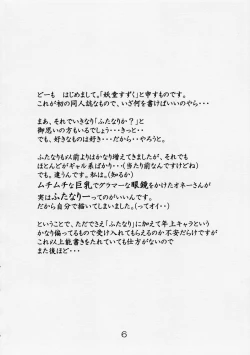 どーも　はじめまして。「妖童すずく」と申すものです。
これが初の同人誌なもので、いざ何を書けばいいのやら・・・
まあ、それでいきなり「ふたなりか?」と
御思いの方もいるでしょう・・・きっと・・
でも、好きなものは好き・・・だから・・やろうと。
ふたなりも以前よりはかなり増えてきましたが、それでも
ほとんどがギャル系ばかり・・・(当たり前なんですけどね)
でも。違うんです。私は。(知るか)
ムチムチな巨乳でグラマーな眼鏡をかけたオネーさんが
実はふたなりーってのがいいんです。
だから自分で描いてしまいました。(ってオイ・・)
ということで、ただでさえ「ふたなり」に加えて年上キャラという
かなり偏ってるもので受け入れてもらえるのか不安だらけですが
これ以上能書きをたれていても仕方がないので
また後ほど・・・
6